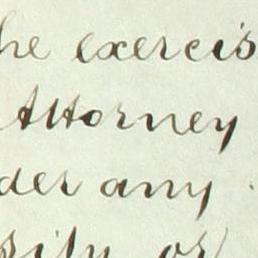 he exercis
Attorney
der any
sity or